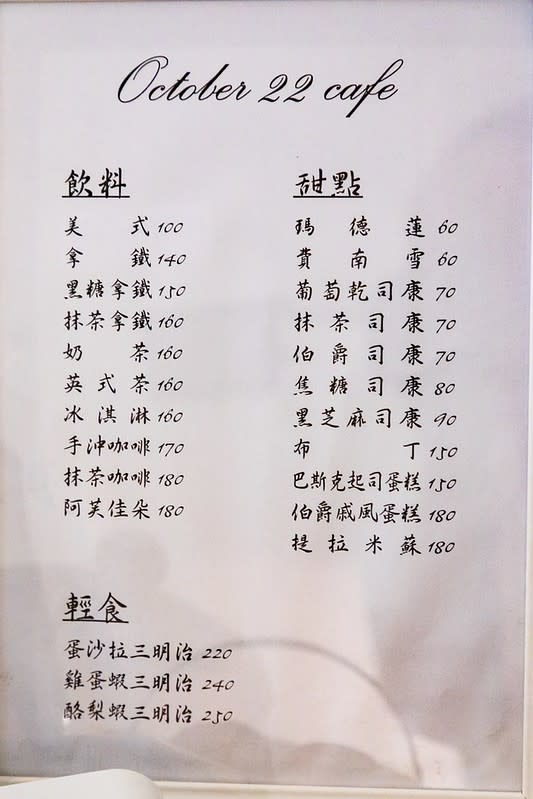 October 22 cafe
飲料
美式 100
拿鐵 140
黑糖拿鐵 150
抹茶拿鐵 160
奶茶 160
英式茶 160
冰淇淋 160
手沖咖啡 170
抹茶咖啡 180
阿芙佳朵 180
輕食
蛋沙拉三明治 220
雞蛋蝦三明治 240
酪梨蝦三明治 250
甜點
瑪德蓮 60
費南雪 60
葡萄乾司康 70
抹茶司康 70
伯爵司康 70
焦糖司康 80
黑芝麻司康 90
布丁 150
巴斯克起司蛋糕 150
伯爵戚風蛋糕 180
提拉米蘇 180